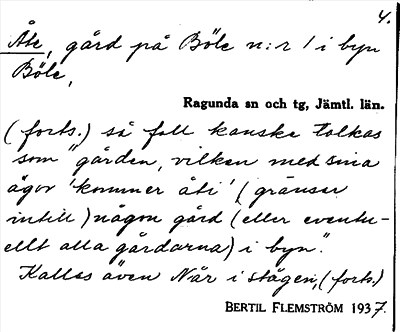 4.
Åte, gård på Böle n:r 1 i byn
Böle,
Ragunda sn och tg, Jämtl. län.
(forts.) så fall kanske tolkas
som "gården, vilken med sina
ägor 'kommer åti' (gränsar
intill) någon gård (eller eventu-
ellt alla gårdarna) i byn".
Kallas även När i stägen, (forts.)
BERTIL FLEMSTRÖM 1937.